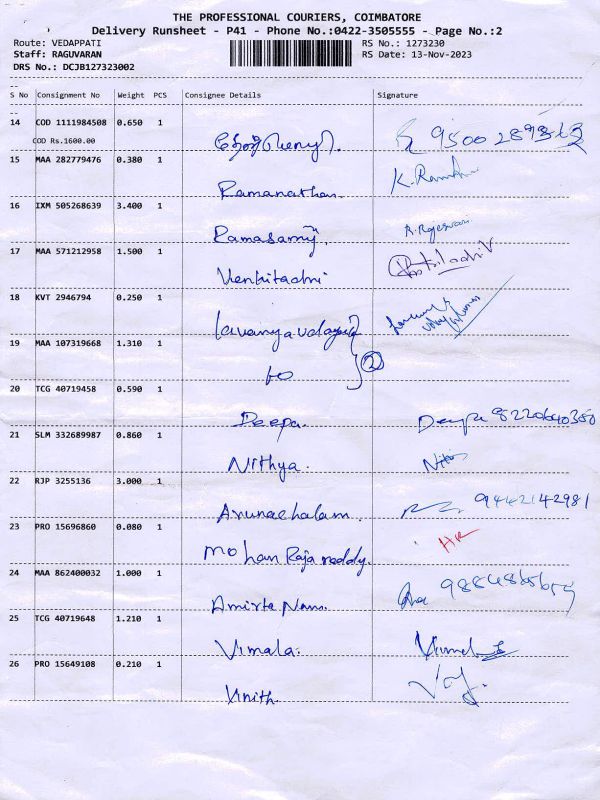 THE PROFESSIONAL COURIERS, COIMBATORE
Delivery Runsheet - P41 - Phone No.:0422-3505555 - Page No.:2
Route: VEDAPPATI RS No.: 1273230
Staff: RAGUVARAN RS Date: 13-Nov-2023
DRS No.: DCJB127323002
S No Consignment No Weight PCS Consignee Details Signature
14 COD 1111984508 0.650 1
COD Rs.1600.00
15 MAA 282779476 0.380 1 K. Ramn
Ramanathan.
16 IXM 505268639 3.400 1
Ramasamy R. Rajeswari
17 MAA 571212958 1.500 1
Venkitadri
18 KVT 2946794 0.250 1
Lavanya udaya
19 MAA 107319668 1.310 1
to 2
20 TCG 40719458 0.590 1
Deepa. Deepa 8220640350
21 SLM 332689987 0.860 1
Nithya.
22 RJP 3255136 3.000 1
Arunachalam. 9442142981
23 PRO 15696860 0.080 1
Mohan Raja reddy.
24 MAA 862400032 1.000 1
Amirta Nam.
25 TCG 40719648 1.210 1
Vimala.
26 PRO 15649108 0.210 1
Vinith.